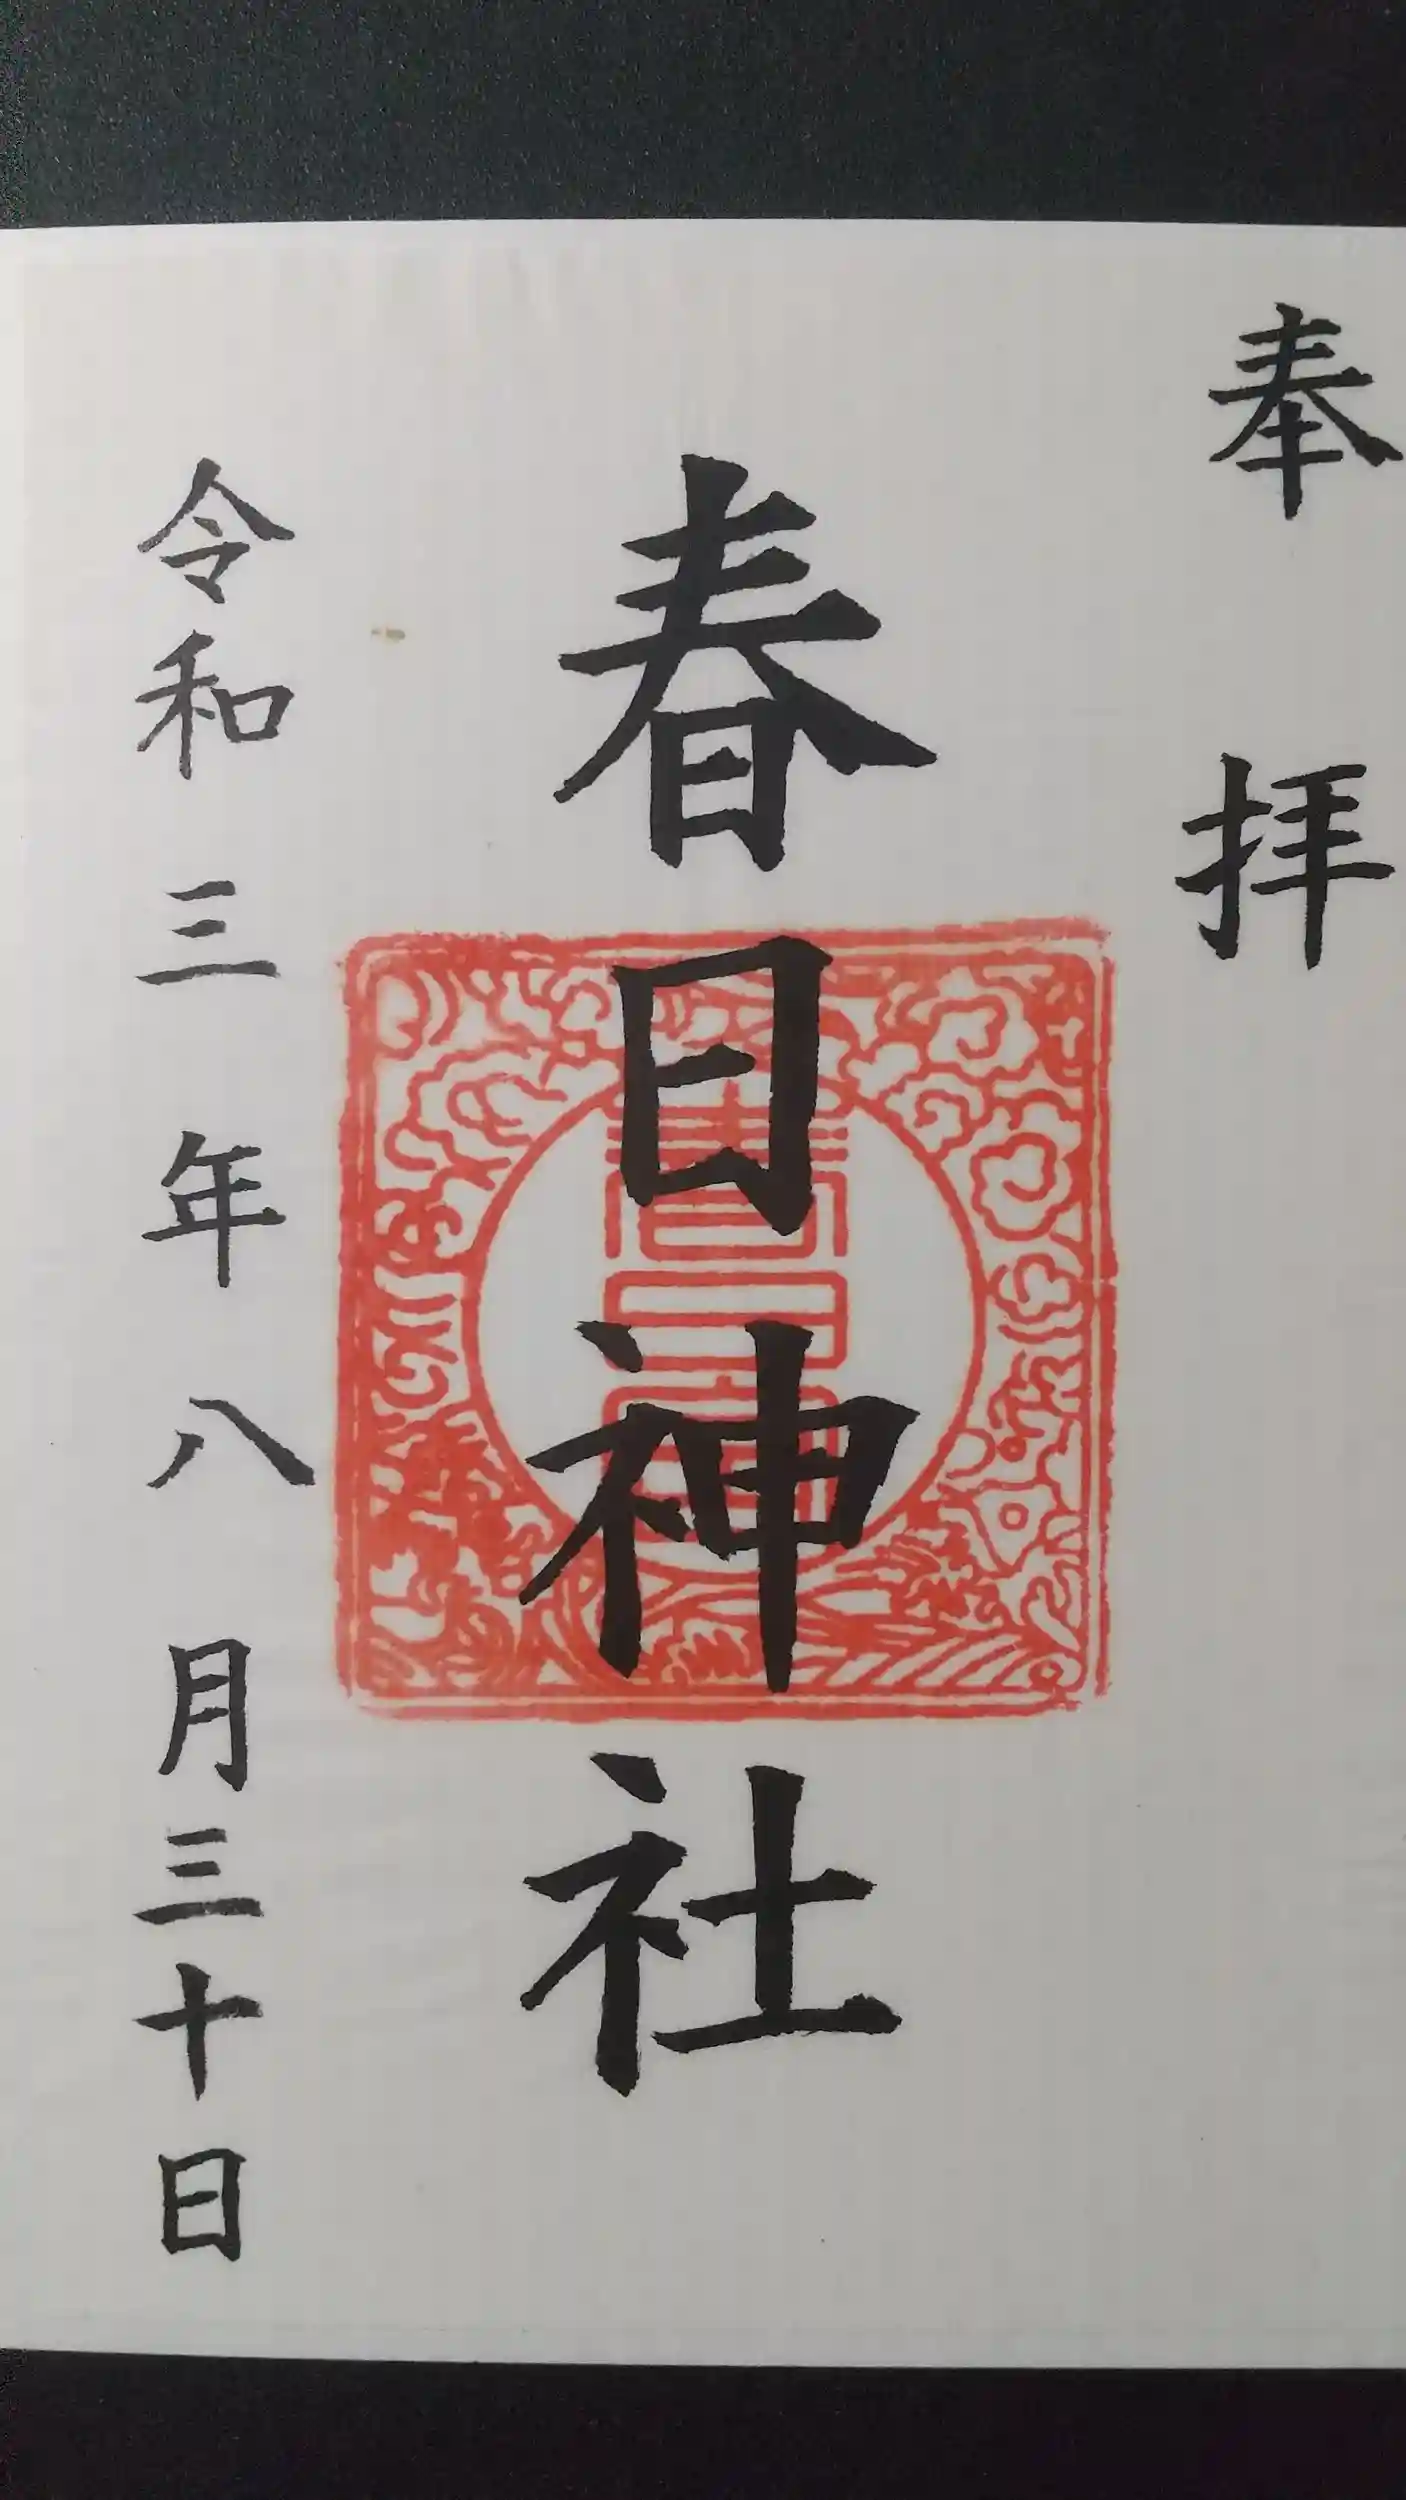 奉拝
春日神社
令和三年八月三十日